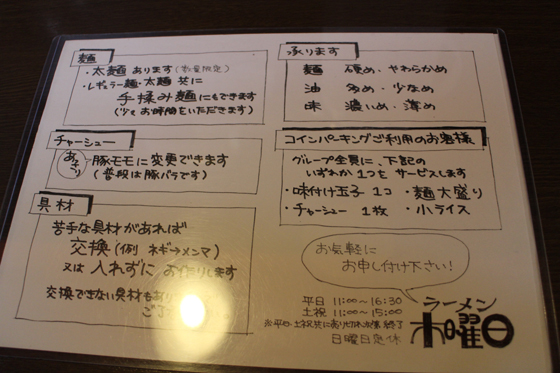 麺
・太麺 あります(数量限定)
・レギュラー麺・太麺 共に
手揉み麺にもできます
(少々お時間をいただきます)
チャーシュー
あっさり 豚モモに変更できます
(普段は豚バラです)
具材
苦手な具材があれば
交換(例 ネギ→メンマ)
又は 入れずに お作りします
交換できない具材もあり
ご了
承ります
麺 硬め・やわらかめ
油 多め・少なめ
味 濃いめ・薄め
コインパーキングご利用のお客様
グループ全員に、下記の
いずれか1つをサービスします
・味付け玉子 1コ ・麺大盛り
・チャーシュー 1枚 ・小ライス
お気軽に
お申し付け下さい!
平日 11:00~16:30
土祝 11:00~15:00
※平日・土祝共にあり切れ次第終了
日曜日定休
ラーメン
木曜日